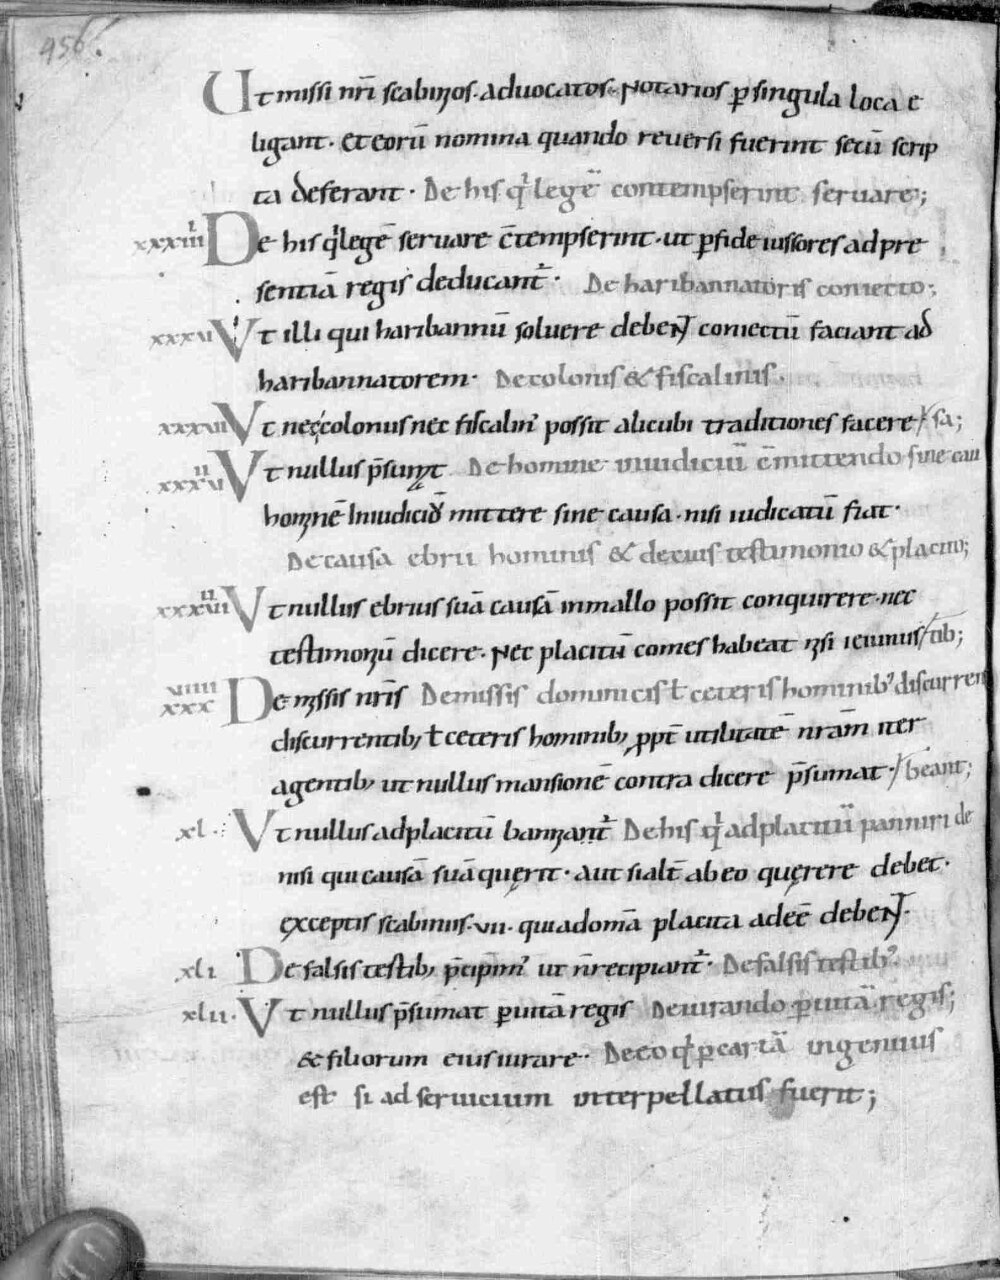 456.
Ut missi nr̄i scabinos · aduocatos · Notarios ꝑ singula loca e
ligant · et eorū nomina quando reuersi fuerint secū scrip
ta deferant · De his qͥ legē contempserint seruare;
xxxiiii De his qͥ legē seruare c̄tempserint · ut ꝑ fideiussores ad pre
sentiā regis deducant᷑ · De haribannatoris coniecto;
xxxvi Vt illi qui haribannū soluere debent coniectū faciant ad
haribannatorem · De colonis & fiscalinis.
xxxvii Vt nec colonus nec fiscalin᾽ possit alicubi traditiones facere / sa;
xxxvii Vt nullus p̄sumat De homine iniudiciū c̄mittendo sine cau
hominē In iudiciū mittere sine causa · nisi iudicatū fiat ·
De causa ebrii hominis & de eius testimonio & placito;
xxxviii Vt nullus ebrius suā causā in mallo possit conquirere · nec
testimoniū dicere · Nec placitū comes habeat nisi ieiunus / tib;
xxxviiii De missis nr̄is De missis dominicis ł ceteris hominib᾽ discurren
discurrentib; ł ceteris hominib; ꝓpt̄ utilitatē nrām iter
agentib; ut nullus mansionē contra dicere p̄sumat · / beant;
xl · Vt nullus ad placitū banniat᷑ De his qͥ ad placitū panniri de
nisi qui causā suā querit · aut si alt̄ ab eo querere debet ·
exceptis scabinis · vii · qui ad om̄a placita adeē debent ·
xli De falsis testib; p̄cipim᾽ ut n̄ recipiant᷑ · De falsis testib᾽
xlii · Vt nullus p̄sumat ꝑ uitā regis De iurando ꝑ uitā regis;
& filiorum eius iurare · De eo qͥ ꝑ cartā ingenuus
est si ad seruicium interpellatus fuerit;